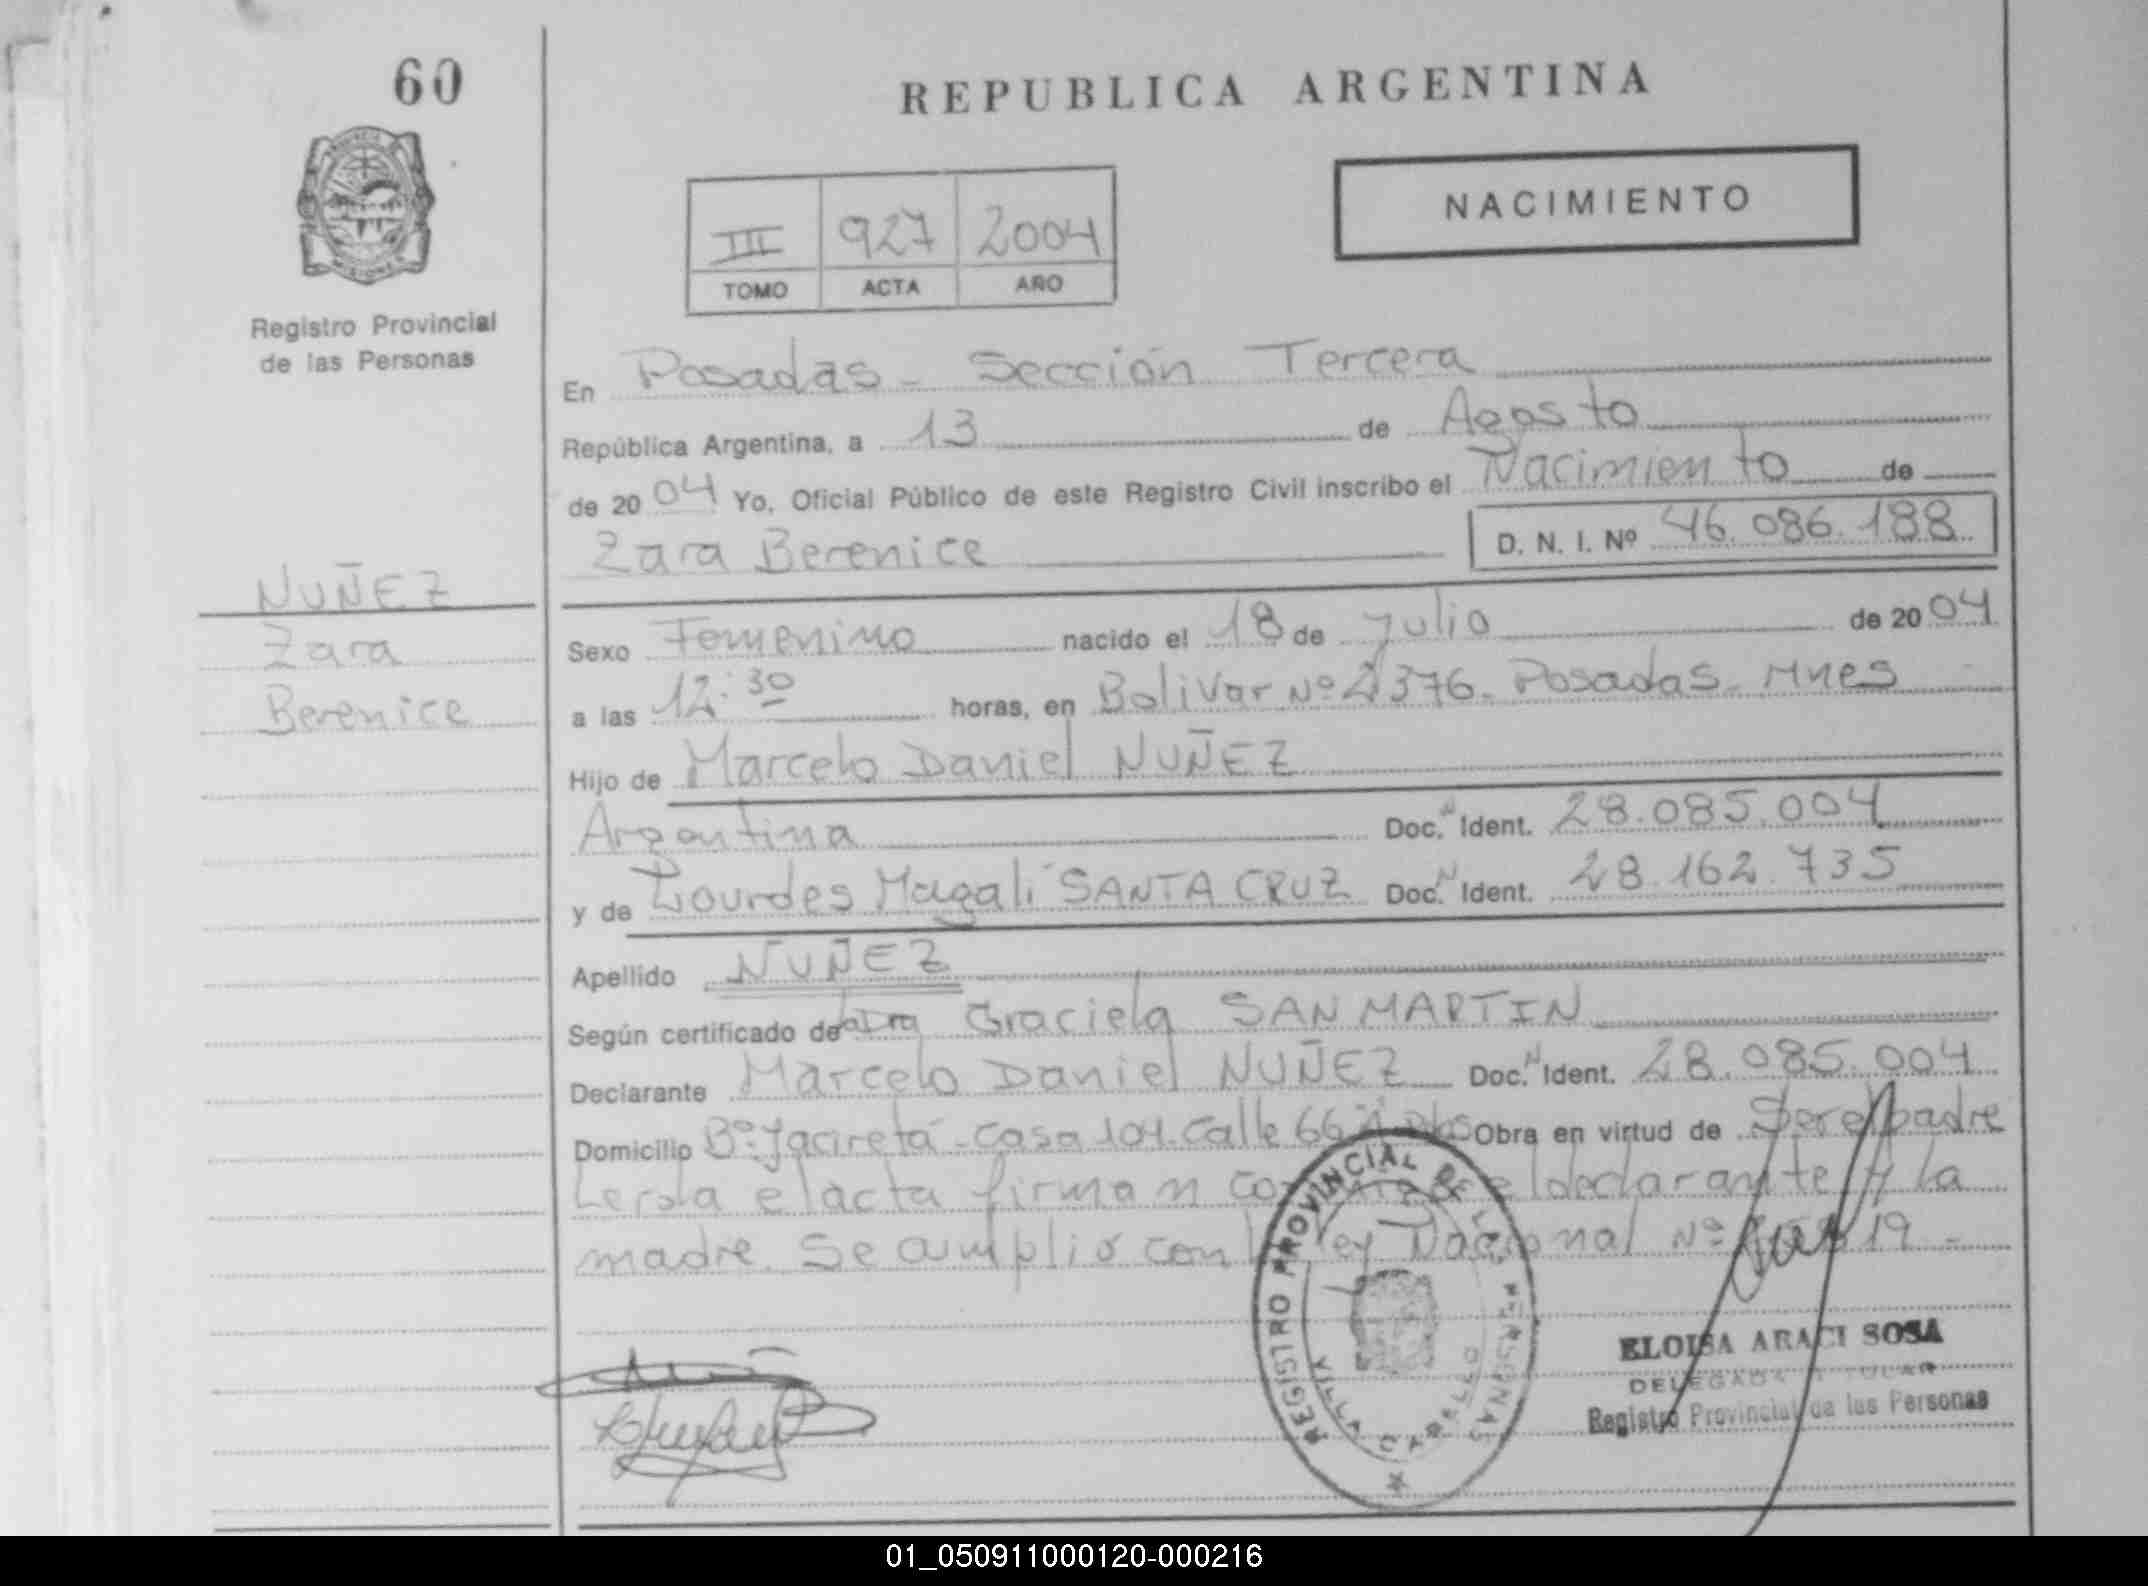 60
REPUBLICA ARGENTINA
PROVINCIA
MISIONES
Registro Provincial
de las Personas
III 927 2004
TOMO ACTA AÑO
NACIMIENTO
En Posadas - Sección Tercera
República Argentina, a 13 de Agosto
de 2004 Yo, Oficial Público de este Registro Civil inscribo el Nacimiento de
Zara Berenice D. N. I. Nº 46.086.188
NUÑEZ
Zara
Berenice
Sexo Femenino nacido el 18 de Julio de 2004
a las 12:30 horas, en Bolivar Nº 2376. Posadas - Mnes
Hijo de Marcelo Daniel NUÑEZ
Argentina Doc. N Ident. 28.085.004
y de Lourdes Magali SANTA CRUZ Doc. N Ident. 28.162.735
Apellido NUÑEZ
Según certificado de la Dra Graciela SAN MARTIN
Declarante Marcelo Daniel NUÑEZ Doc. N Ident. 28.085.004
Domicilio Bº Yaciretá - Casa 101 - Calle 66 Obra en virtud de Ser el padre
Leida el acta firman el declarante y la
madre. Se cumplió con ley Nacional Nº 19 -
REGISTRO PROVINCIAL DE LAS PERSONAS
VILLA CABELLO
ELOISA ARACI SOSA
DELEGADA TITULAR
Registro Provincial de las Personas
01_050911000120-000216